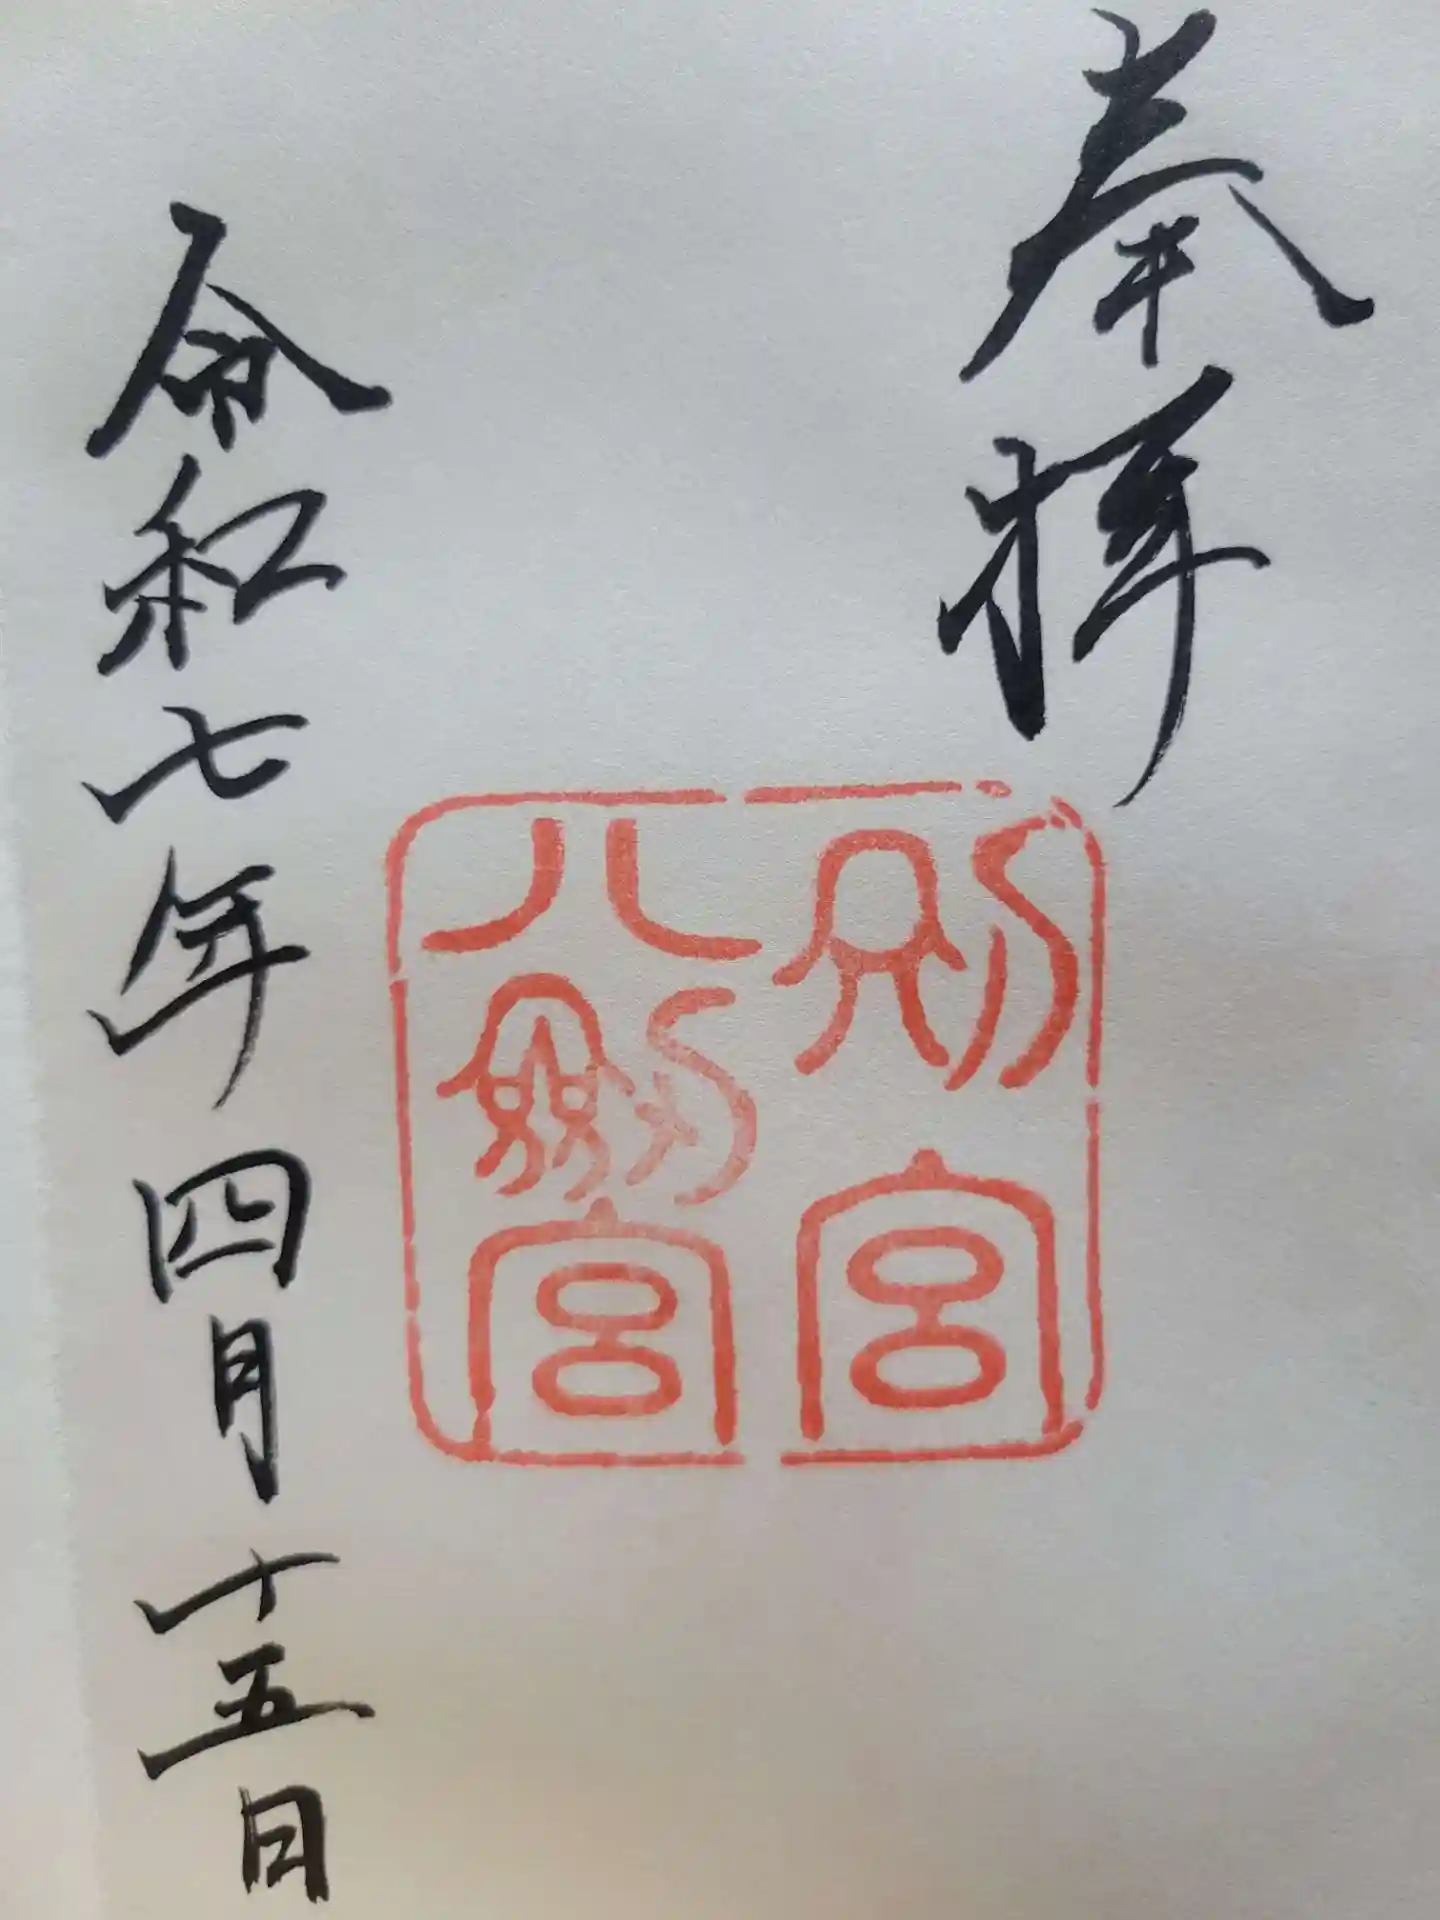 奉拝
別宮
八劔宮
令和七年四月十五日